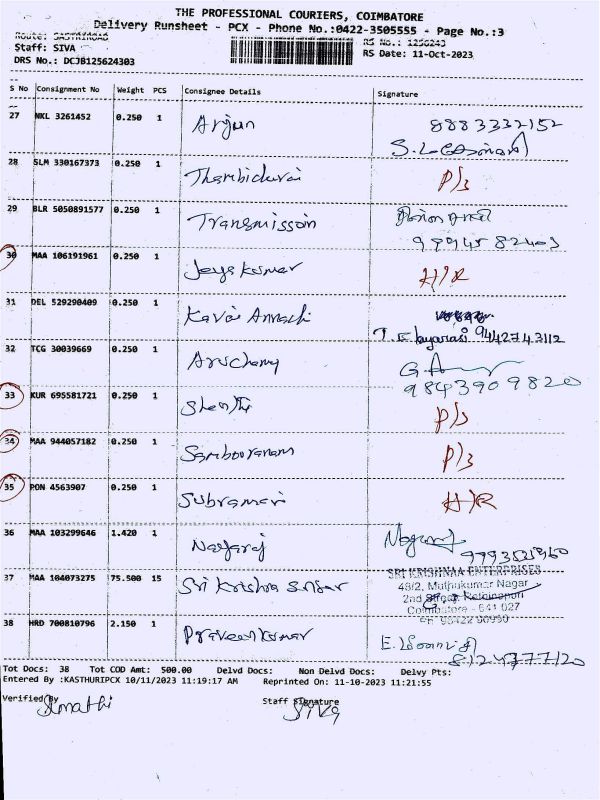 THE PROFESSIONAL COURIERS, COIMBATORE
Delivery Runsheet - PCX - Phone No.:0422-3505555 - Page No.:3
Route: SASTRIROAD RS No.: 1256243
Staff: SIVA RS Date: 11-Oct-2023
DRS No.: DCJB125624303
S No Consignment No Weight PCS Consignee Details Signature
27 NKL 3261452 0.250 1 Arjun 8883332152
28 SLM 330167373 0.250 1 Thambidurai P/s
29 BLR 5050891577 0.250 1 Transmissoin
9994582403
30 MAA 106191961 0.250 1 Jeya kumar H/R
31 DEL 529290409 0.250 1 Kavai Annachi
9442743112
32 TCG 30039669 0.250 1 Aruchamy
9843909820
33 KUR 695581721 0.250 1 Shenthi P/s
34 MAA 944057182 0.250 1 Sambooranam P/s
35 PON 4563907 0.250 1 Subramani H/R
36 MAA 103299646 1.420 1 Nagaraj
37 MAA 104073275 75.500 15 Sri Krishna
SRI KRISHNAA ENTERPRISES
48/2, Muthukumar Nagar
2nd Street,
Coimbatore - 641 027
38 HRD 700810796 2.150 1 Praveen kumar
8124777120
Tot Docs: 38 Tot COD Amt: 500.00 Delvd Docs: Non Delvd Docs: Delvy Pts:
Entered By :KASTHURIPCX 10/11/2023 11:19:17 AM Reprinted On: 11-10-2023 11:21:55
Verified By Staff Signature
Siva